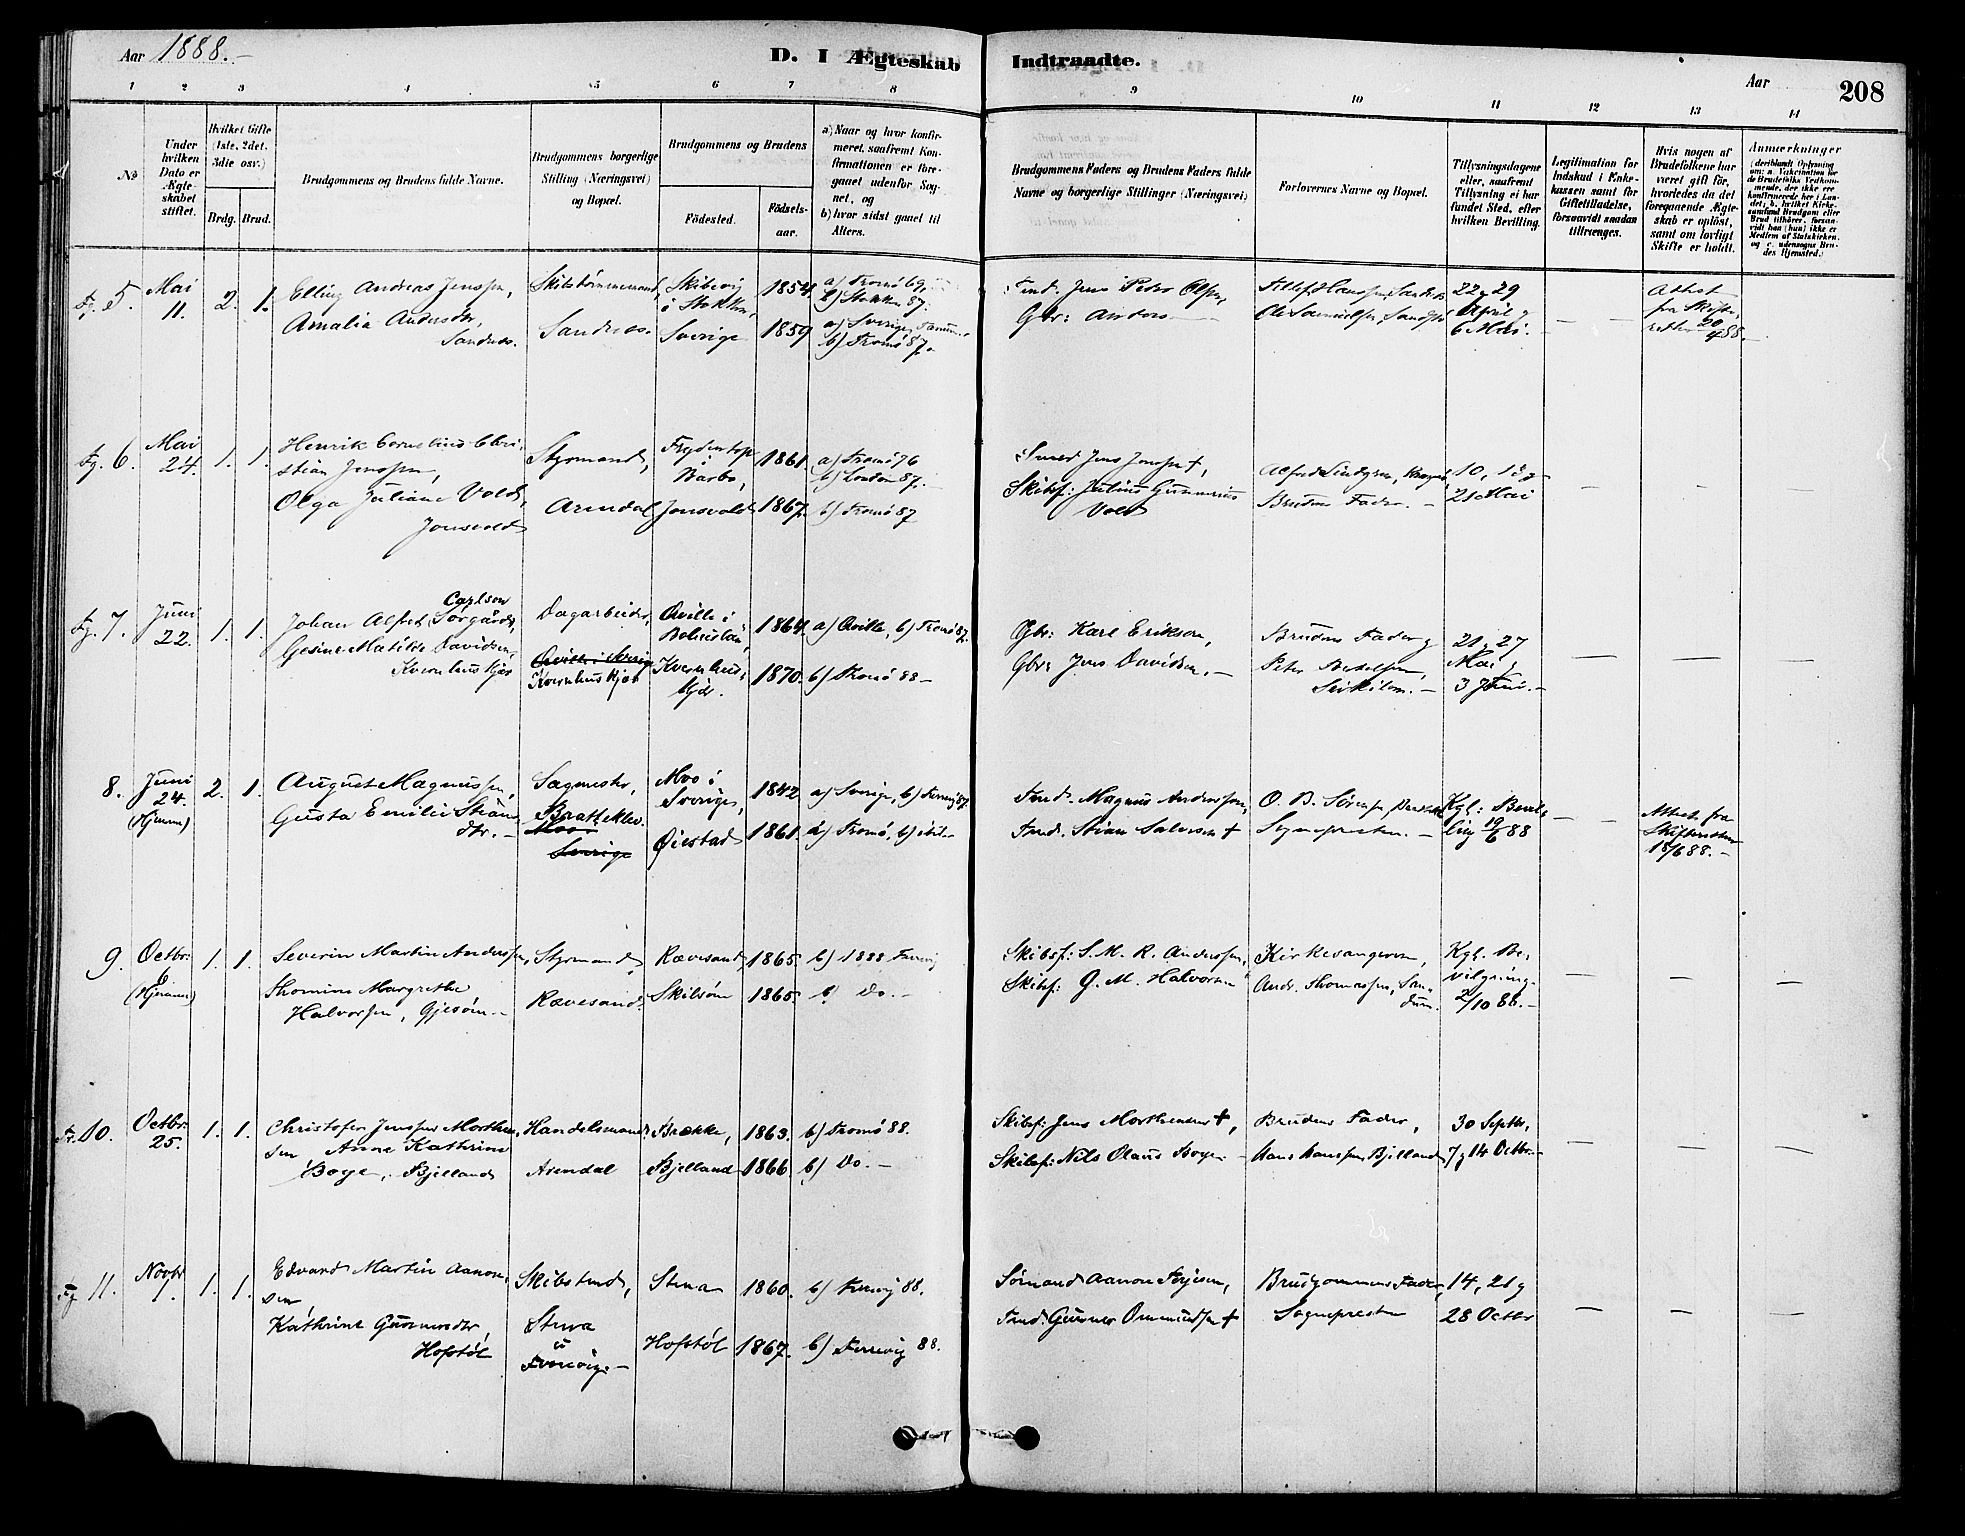 Aar 1888.-
D. I Ægteskab Indtraadte.
Aar
208
1 2 3 4 5 6 7 8 9 10 11 12 13 14
No
Under hvilken Dato er Ægteskabet stiftet.
Hvilket Gifte (1ste, 2det, 3die osv.)
Brdg. Brud.
Brudgommens og Brudens fulde Navne.
Brudgommens borgerlige Stilling (Næringsvei) og Bopæl.
Brudgommens og Brudens
Fødested.
Fødselsaar.
a) Naar og hvor konfirmeret, saafremt Konfirmationen er foregaaet udenfor Sognet, og
b) hvor sidst gaaet til Alters.
Brudgommens Faders og Brudens Faders fulde Navne og borgerlige Stillinger (Næringsvei)
Forlovernes Navne og Bopæl.
Tillysningsdagene eller, saafremt Tillysning ei har fundet Sted, efter hvilken Bevilling.
Legitimation for Indskud i Enkekassen samt for Giftetilladelse, forsaavidt saadan tiltrænges.
Hvis nogen af Brudefolkene har været gift før, hvorledes da det foregaaende Ægteskab er opløst, samt om lovligt Skifte er holdt.
Anmærkninger
5. Mai 11. 2. 1.
Elling Andreas Jensen,
Amalia Andersdtr,
Sandnes.
Sandnes.
Skibevig i Stokken, 1854.
Sverige 1859
a) Tromö 69.
b) Stokken 87.
a) Sverige,
b) Tromö 87.
Jens Peder Olsen,
Gbr: Anders
22 g 29
April g
6 Mai.
Attest
fra Skifte-
retten 20/4 88.-
6. Mai 24. 1. 1.
Henrik Cornelius Chri-
stian Jenssen,
Olga Juliane Vold,
Jonsvold
Styrmand,
Arendal
i Barbo, 1861.
Jonsvold 1867.
a) Tromö 76
b) London 87.
b) Tromö 87
Smed Jens Jenssen +,
Skibsf: Julius Gunnerius
Vold
Alfred Lindgren,
Brudens Fader. -
10, 13 g
21 Mai
7. Juni 22. 1. 1.
Johan Alfred Carlson Sörgård,
Gesine Matilde Davidsen,
Kvernhuskjær
Dagarbeider,
Qville i Sverige
Kvernhuskjær
Qville i Bohuslän, 1864.
Kvernhuskjær. 1870.
a) Qville, b) Tromö 87.
b) Tromö 88 -
Gbr: Karl Erikson,
Gbr: Jens Davidsen. -
Brudens Fader g
Peter
21 g 27
Mai g
3 Juni. -
8. Juni 24. (Hjemme) 2. 1.
August Magnussen,
Gusta Emilie Stians-
dtr. -
Sagmester,
Bratteklev.
Moo
Sverige
Moo i Sverige, 1842
Øiestad 1861.
a) Sverige,
a) Tromö, b) ibid -
Magnus Anderssen,
Stian Salvesen +
O. B. Sörensen
Sognepresten. -
Kgl. Bevil-
ling 19/6 88
Attest fra
Skifteretten
18/6 88. -
9. Octbr: 6 (Hjemme) 1. 1.
Severin Martin Anderssen,
Thomine Margrethe
Halvorsen, Gjesöm. -
Styrmand,
Rævesand.
Rævesand, 1865.
Skilsöm 1865.
b) 1888 Færvig
b) Do. -
Skibsf: S. M. R. Anderssen,
Skibsf: G. M. Halvorsen
Kirkesangeren,
Andr. Thomassen, San-
dum.
Kgl. Be-
vilgning
2/10 88. -
10. Octbr: 25. 1. 1.
Christofer Jenssen Morthen-
sen
Anne Kathrine
Boye, Bjelland
Handelsmand,
Arendal
Brække, 1863.
Bjelland 1866
b) Tromö 88.
b) Do. -
Skibsf: Jens Morthensen +,
Skibsf: Nils Olaus Boye. -
Brudens Fader,
Hans Hanssen, Bjelland
30 Septbr,
7 g 14 Octbr. -
11. Novbr 1. 1. 1.
Edvard Martin Aanon-
sen
Kathrine Gunnersdtr,
Hofstöl
Stuva
Færvig. -
Stuva 1860.
Hofstöl 1867.
b) Færvig 88.
b) Færvig 88.
Sömand Aanon Terjesen,
Gunner Ommundsen +
Brudgommens Fader,
Sognepresten
14, 21 g
28 Octbr